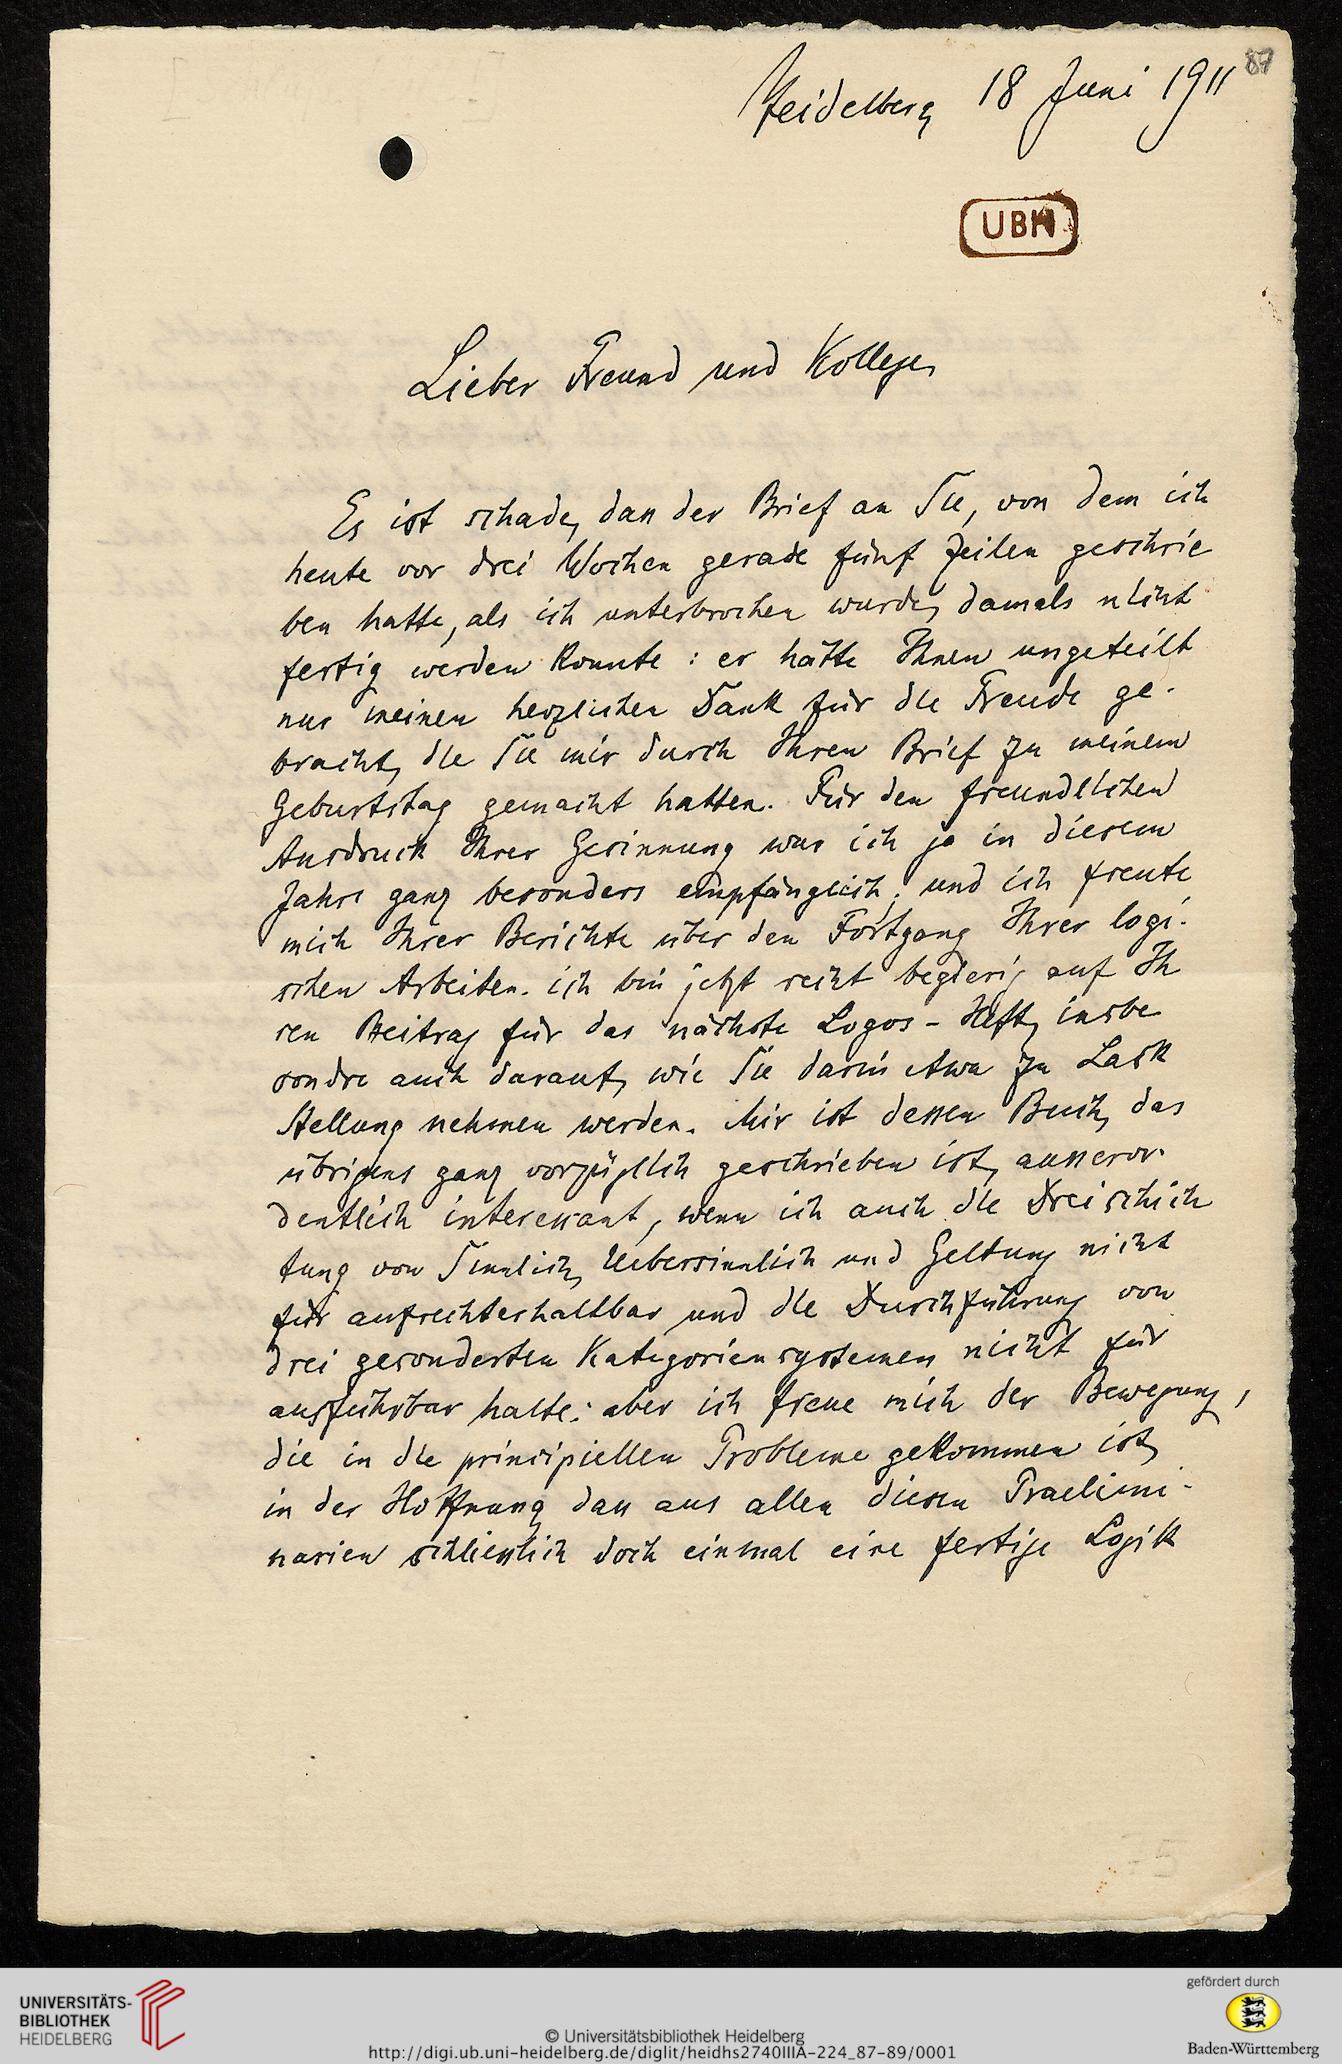 87
Heidelberg 18 Juni 1911
UBH
Lieber Freund und Kollege,
Es ist schade, dass der Brief an Sie, von dem ich
heute vor drei Wochen gerade fünf Zeilen geschrie
ben hatte, als ich unterbrochen wurde, damals nicht
fertig werden konnte: er hätte Ihnen ungeteilt
nur meinen herzlichen Dank für die Freude ge-
bracht, die Sie mir durch Ihren Brief zu meinem
Geburtstag gemacht hatten. Für den freundlichen
Ausdruck Ihrer Gesinnung war ich ja in diesem
Jahre ganz besonders empfänglich; und ich freute
mich Ihrer Berichte über den Fortgang Ihrer logi-
schen Arbeiten. ich bin jetzt recht begierig auf Ih
ren Beitrag für das nächste Logos-Heft, insbe
sondre auch darauf, wie Sie darin etwa zu Lask
Stellung nehmen werden. Mir ist dessen Buch, das
übrigens ganz vorzüglich geschrieben ist, ausseror-
dentlich interessant, wenn ich auch die Dreischich
tung von Sinnlich, Uebersinnlich und Geltung nicht
für aufrechterhaltbar und die Durchführung von
drei gesonderten Kategoriensystemen nicht für
ausführbar halte: aber ich freue mich der Bewegung,
die in die principiellen Probleme gekommen ist,
in der Hoffnung dass aus allen diesen Praelimi-
narien schliesslich doch einmal eine fertige Logik
UNIVERSITÄTS-
BIBLIOTHEK
HEIDELBERG
© Universitätsbibliothek Heidelberg
http://digi.ub.uni-heidelberg.de/diglit/heidhs2740IIIA-224_87-89/0001
gefördert durch
Baden-Württemberg